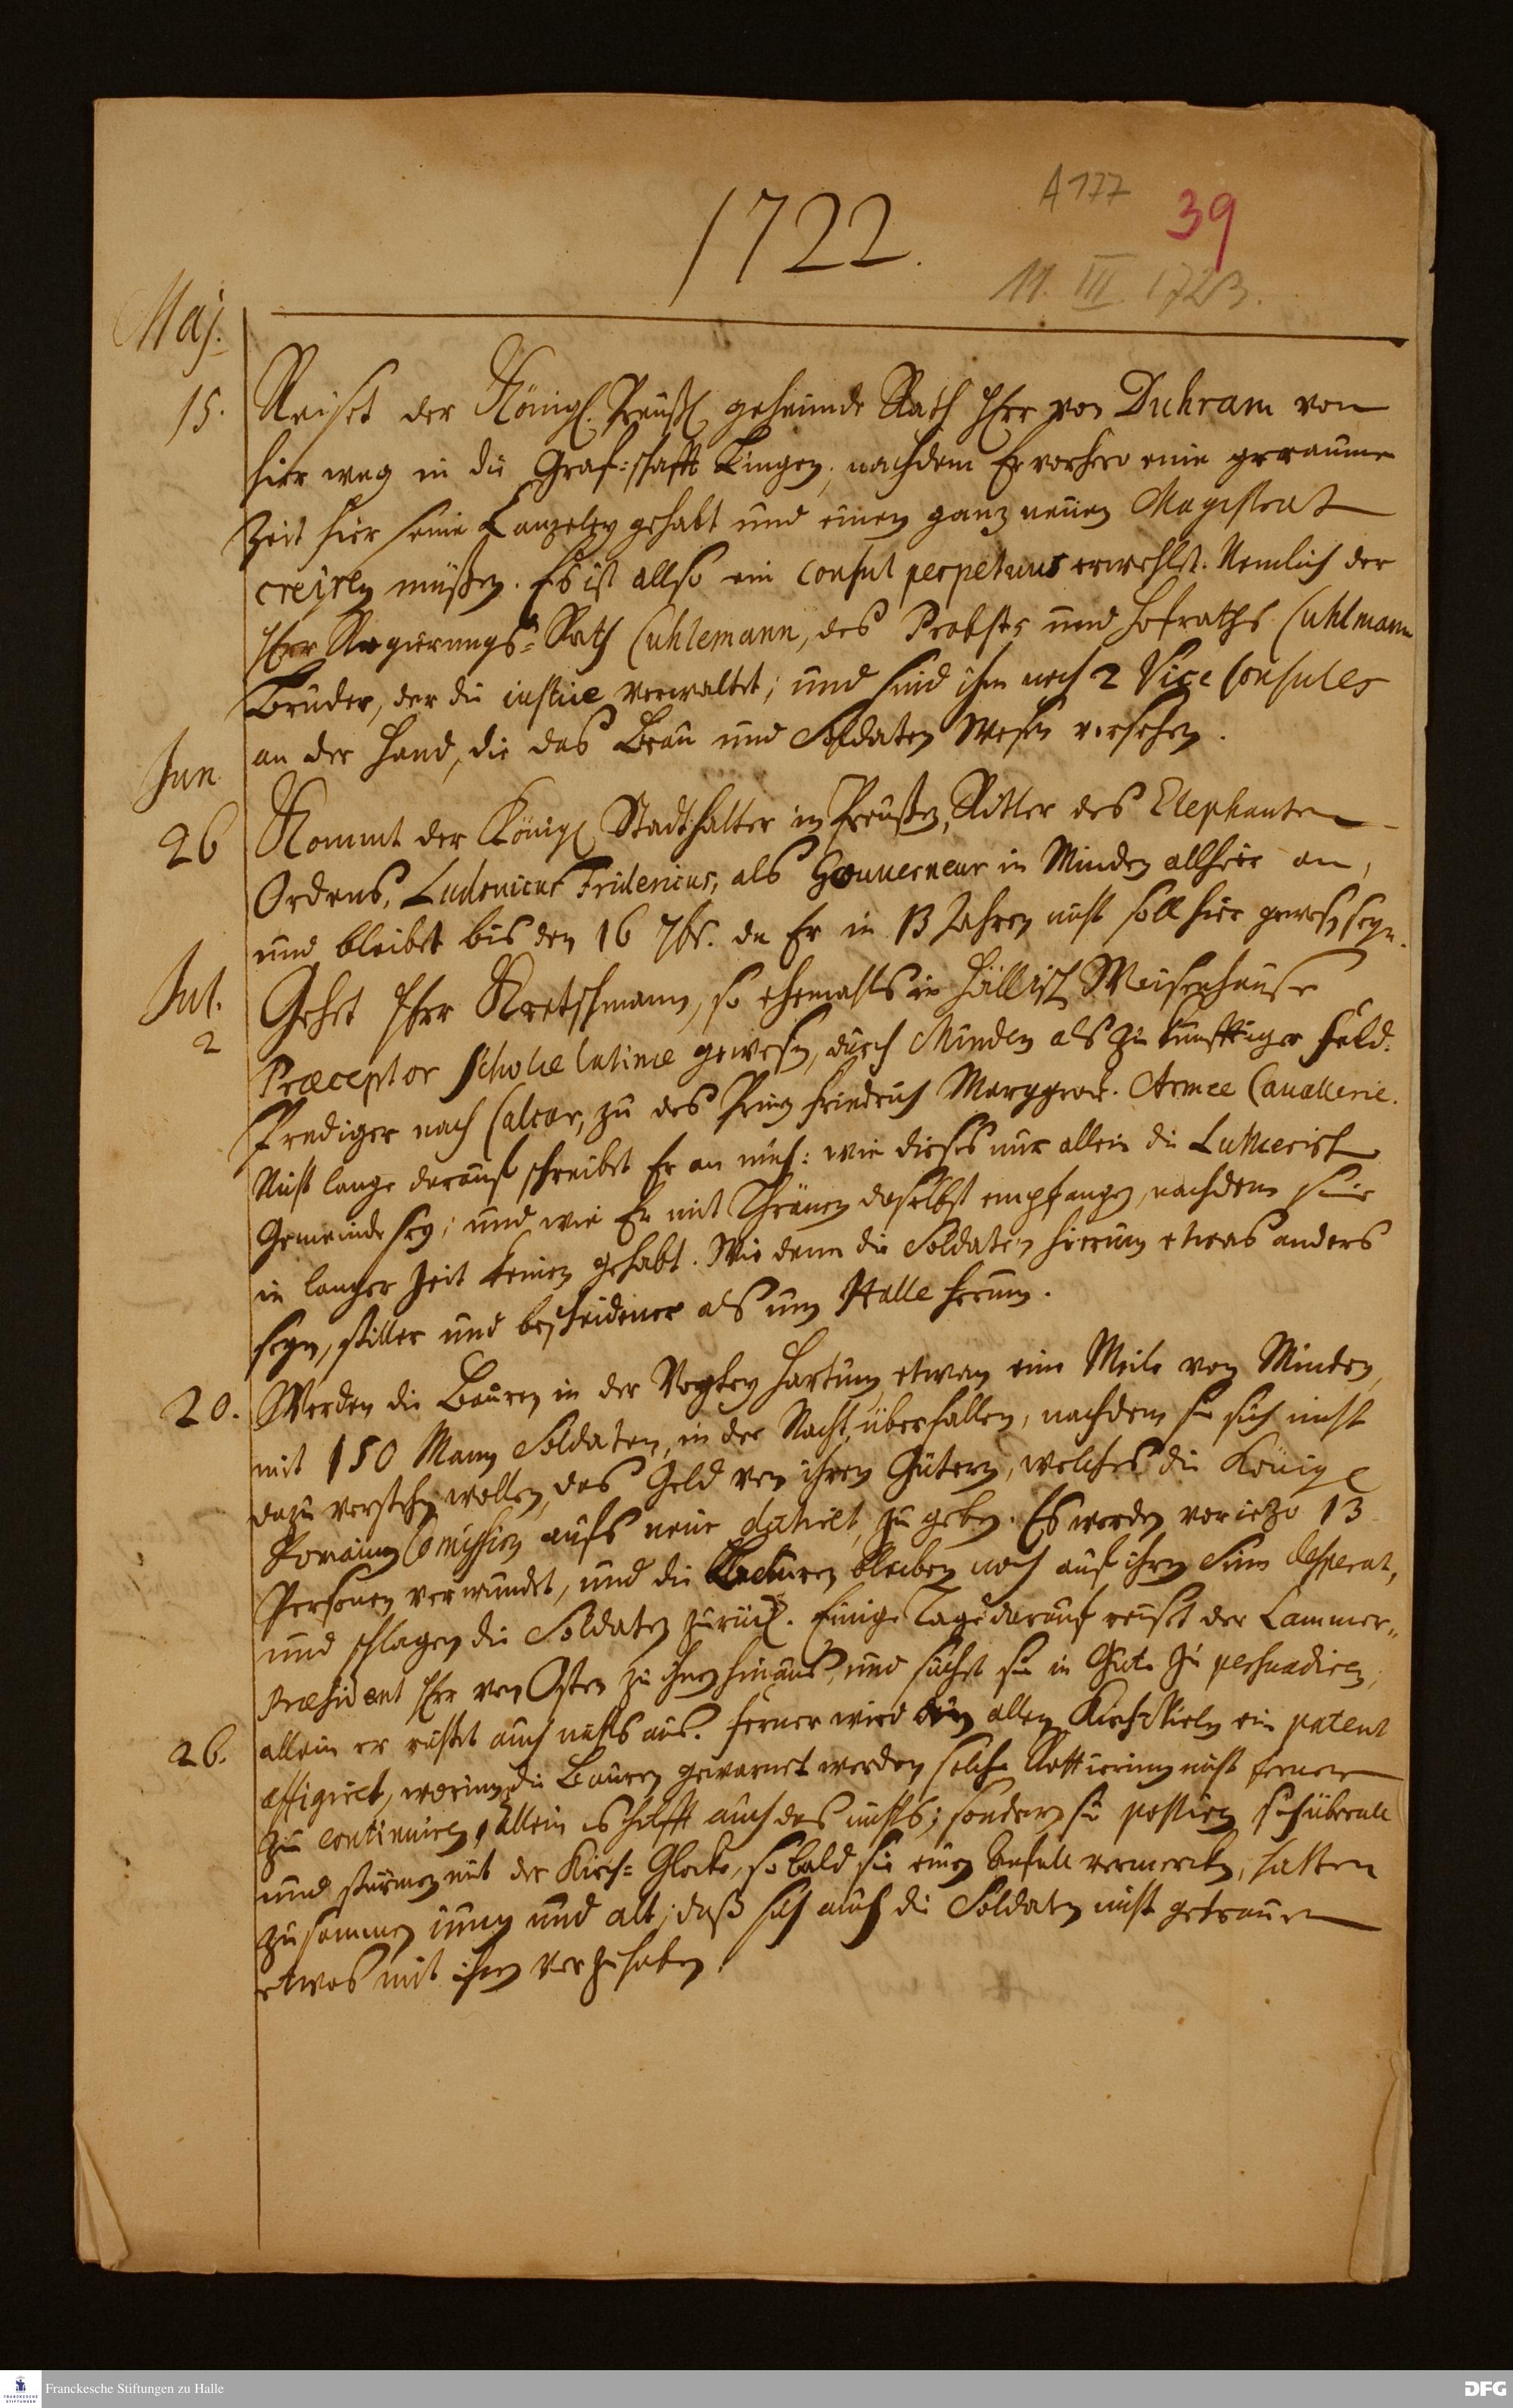 A 177
39
1722.
11. III. 1723.
Maj.
15. Reiset der Königl. Preußl. geheimde Rath Herr von Duhram von
hier weg in die Graf=schafft Lingen, nachdem Er vorhero eine geraume
Zeit hier seine Canzeley gehabt und einen ganz neuen Magistrat
creiren müßen. Es ist allso ein Consul perpetuus erwehlt. Nemlich der
Herr Regierungs=Rath Cuhlemann, des Probsts und Hofraths Cuhlmann
Bruder, der die justice verwaltet; und sind ihm noch 2 Vice Consules
an der Hand, die das Brau und Soldaten Wesen versehen.
Jun
26 Kommt der Königl. Stadthalter in Preußen, Ritter des Elephanten
Ordens, Ludovicus Fridericus, als Gouverneur in Minden allhier an,
und bleibet bis den 16 7br. da Er in 13 Jahren nicht soll hier gewesen seyn.
Jul.
2 Gehet Herr Kretschmann, so ehemahls in Hällisch Waisenhause
Præceptor Scholæ latinæ gewesen, durch Minden als zu künfftiger Feld=
Prediger nach Calcar, zu des Prinz Friedrich Marggraf. Armee Cavallerie.
Nicht lange darauf schreibet Er an mich: wie dieses nur allein die Lutherisch
Gemeinde sey; und wie Er mit Thränen daselbst empfangen, nachdem sie
in langer Zeit keinen gehabt. Wie denn die Soldaten hierum etwas anders
seyn, stiller und bescheidener als um Halle herum.
20. Werden die Bauren in der Vogtey Hartum, etwan eine Meile von Minden,
mit 150 Mann Soldaten, in der Nacht, überfallen, nachdem sie sich nicht
dazu verstehen wollen, das Geld von ihren Gütern, welches die Königl
Domainen Comission aufs neue, zu geben. Es werden vor iezo 13
Personen verwundet, und die Bauren bleiben noch auf ihren Sinn desperat,
und schlagen die Soldaten zurück. Einige Tage darauf reiset der Cammer„
Præsident Herr von Osten zu ihnen hinaus, und suchet sie in Güte zu persuadiren,
allein er richtet auch nichts aus. Ferner wird
26. allen Kirchspielen ein patent
affigiret, worinnen die Bauren gewarnet werden solche Rottirung nicht ferner
zu continuiren, Allein es hilfft auch das nichts; sondern sie postiren sich überall
und stürmen mit der Kirch=Glocke, so bald sie einen anfall vermercken, halten
zusammen jung und alt, daß sich auch die Soldaten nicht getrauen
etwas mit ihnen vorzuhaben.
Franckesche Stiftungen zu Halle
DFG